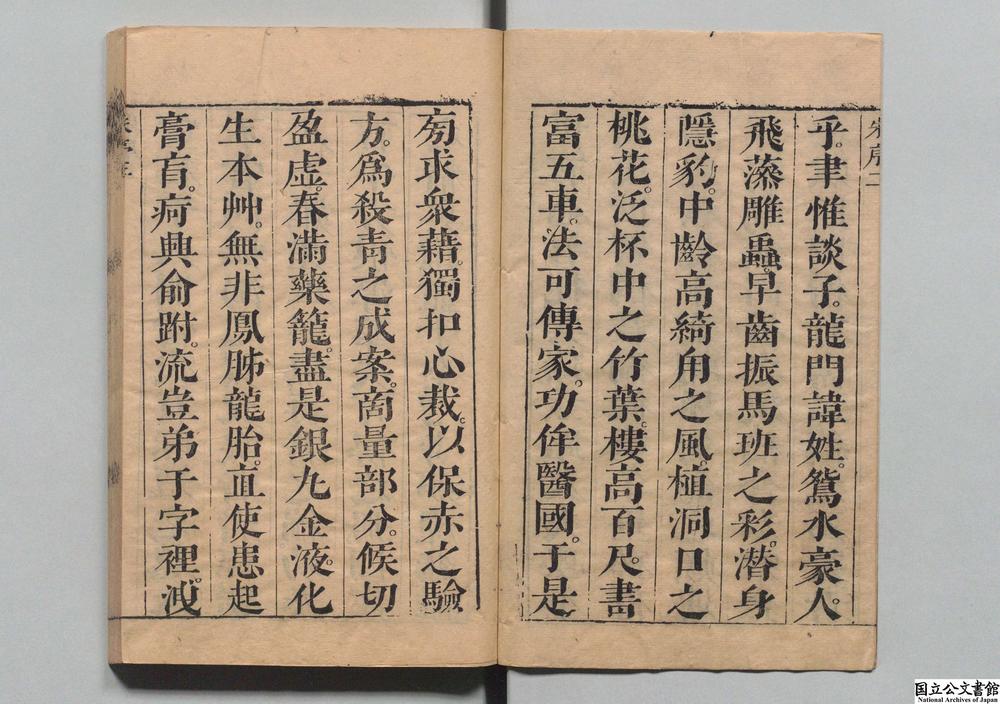 朱序二
乎。聿惟談子。龍門諱姓。鴛水豪人。
飛藻雕蟲。早齒振馬班之彩。潛身
隱豹。中齡高綺甪之風。植洞口之
桃花。泛杯中之竹葉。樓高百尺。書
富五車。法可傳家。功侔醫國。于是
旁求衆藉。獨扣心裁。以保赤之驗
方。爲殺靑之成案。商量部分。候切
盈虛。春滿藥籠。盡是銀丸金液。化
生本艸。無非鳳胏龍胎。直使患起
膏肓。痾興俞跗。流豈弟于字裡。洩
国立公文書館
National Archives of Japan